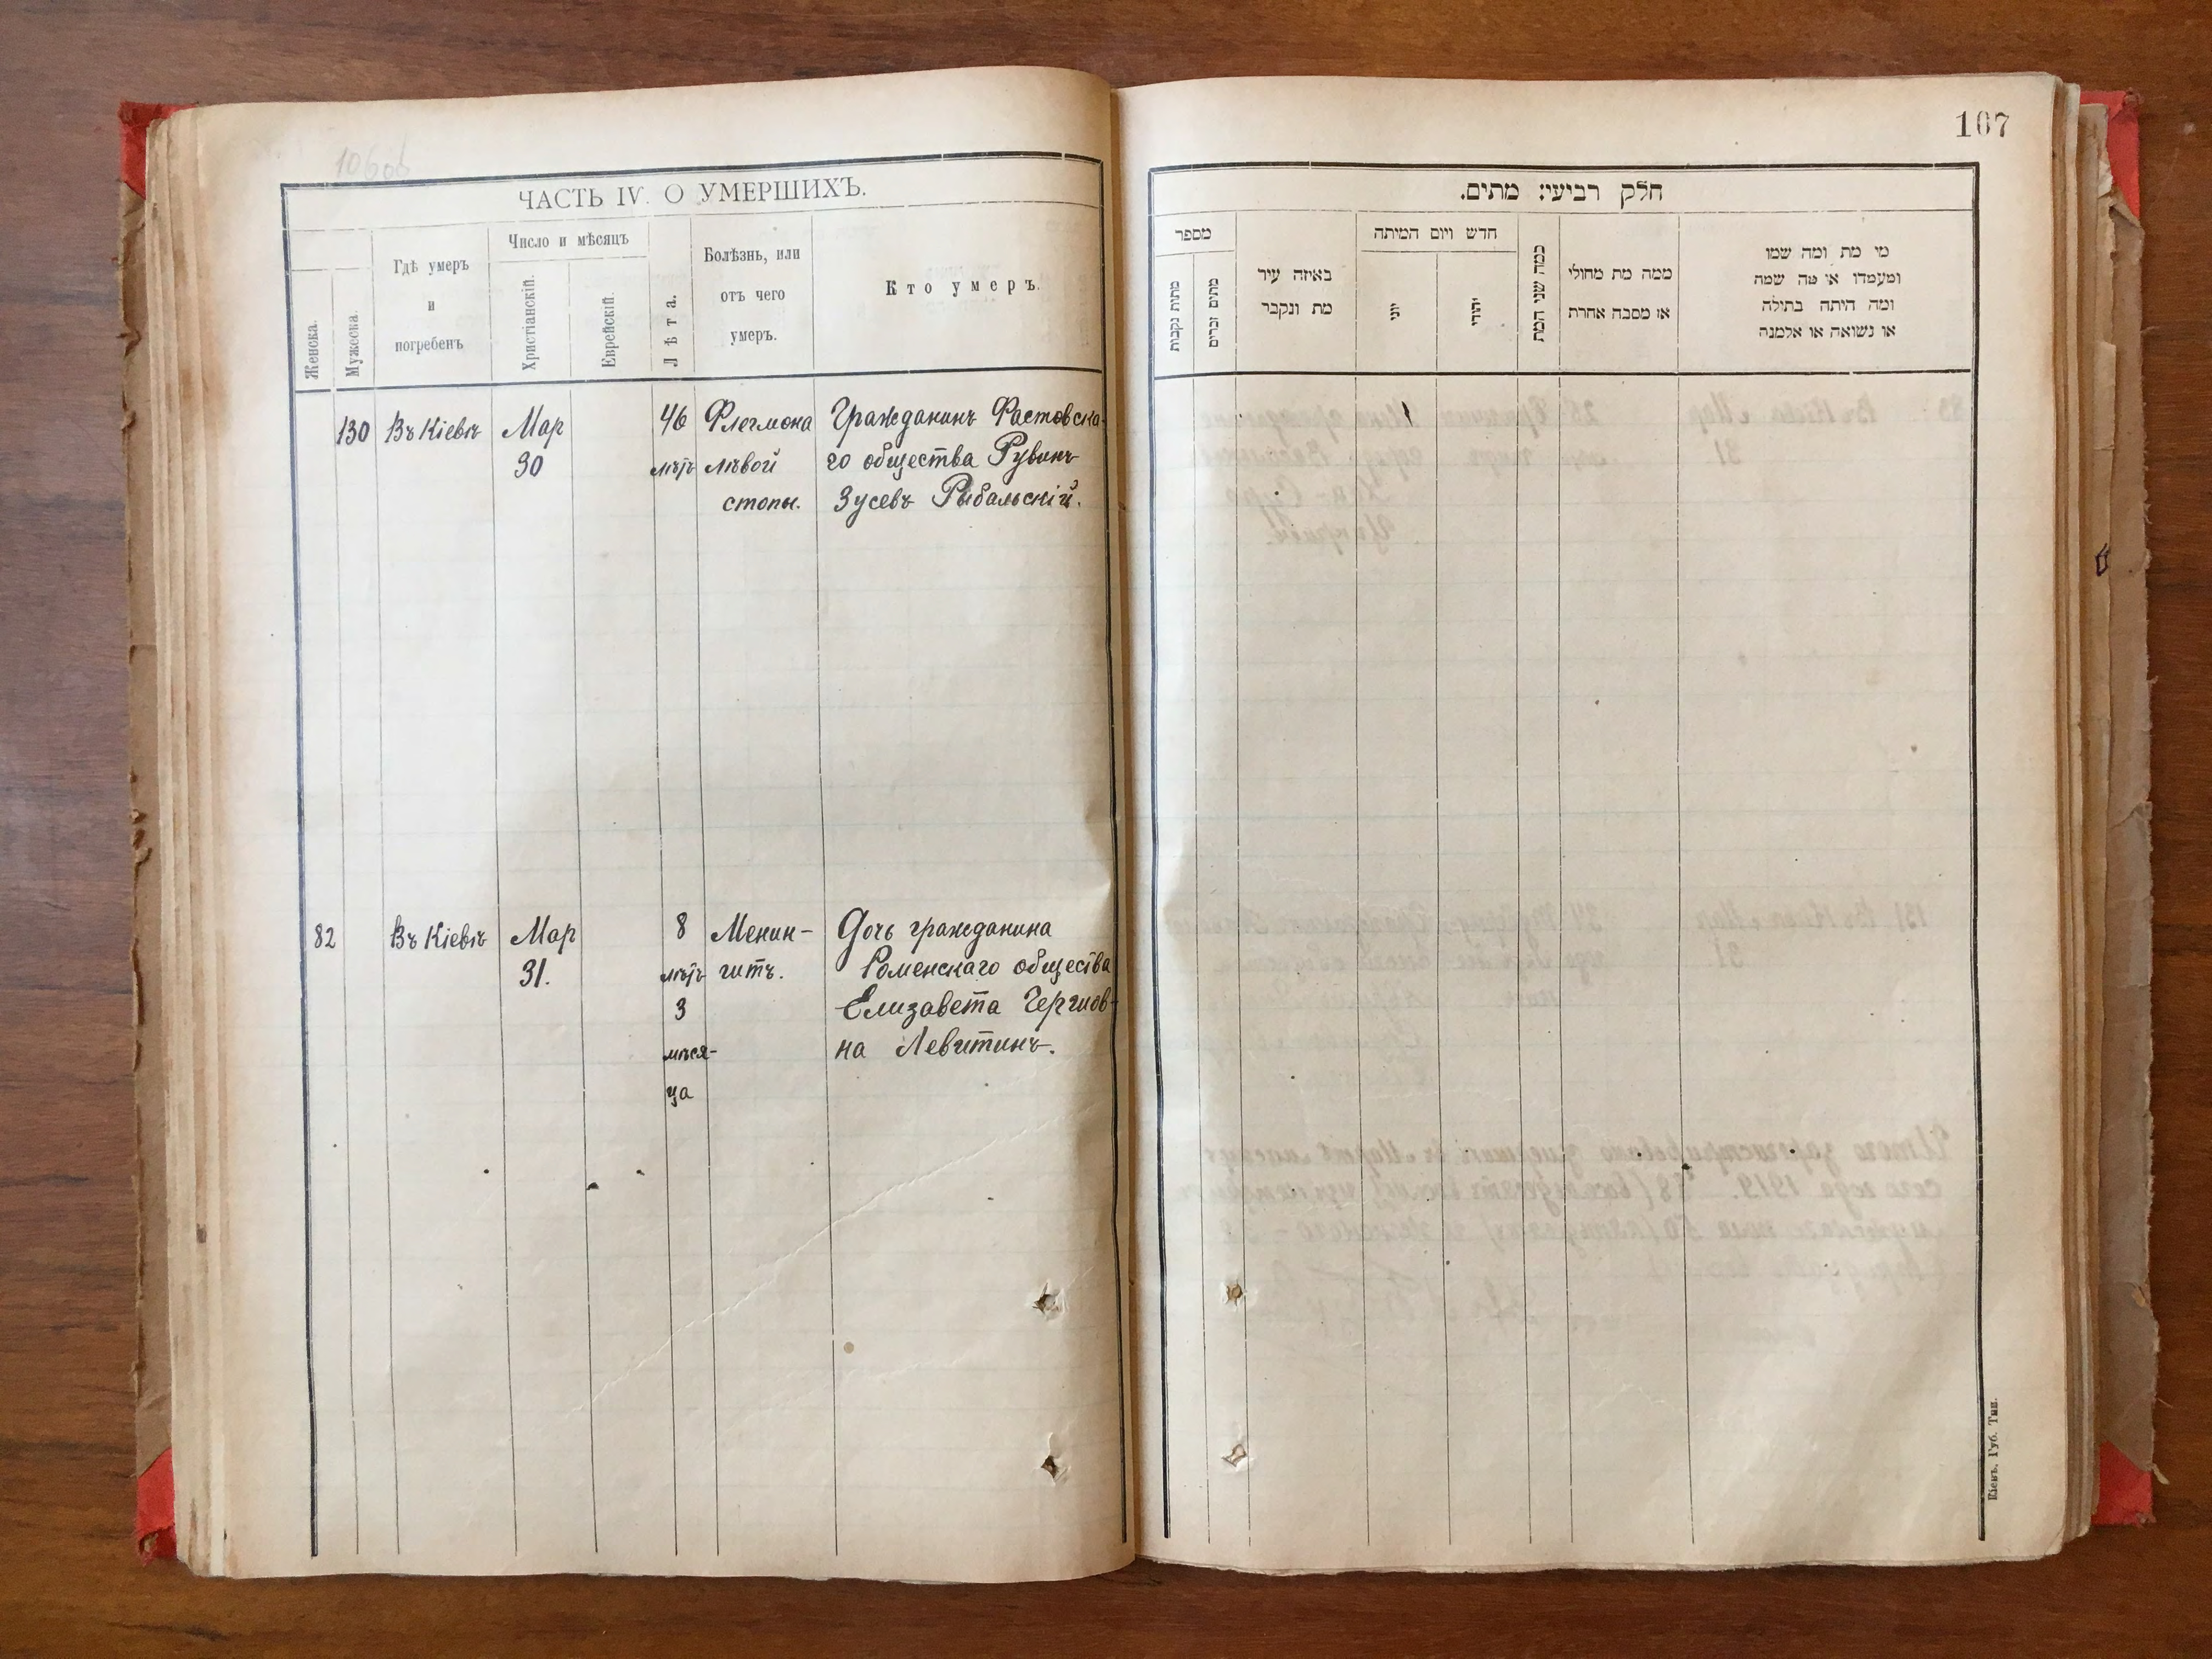 106об
ЧАСТЬ IV. О УМЕРШИХЪ.
Женска.
Мужеска.
Гдѣ умеръ
и
погребенъ
Число и мѣсяцъ
Христіанскій.
Еврейскій.
Лѣта.
Болѣзнь, или
отъ чего
умеръ.
Кто умеръ.
130 Въ Кіевѣ Мар 46 Флегмона Гражданинъ Фастовска-
30 лѣтъ лѣвой го общества Рувинъ
стопы. Зусевъ Рыбальскій.
82 Въ Кіевѣ Мар 8 Менин- Дочь гражданина
31. лѣтъ гитъ. Роменскаго общества
3 Елизавета Герцов-
мѣся- на Левитинъ.
ца
107
חלק רביעי: מתים.
מספר
מתות נקבות
מתים זכרים
באיזה עיר
מת ונקבר
חדש ויום המיתה
יוני
יהודי
כמה שני המת
ממה מת מחולי
או מסבה אחרת
מי מת ומה שמו
ומעמדו או מה שמה
ומה היתה בתילה
או נשואה או אלמנה
Кіевъ, Губ. Тип.